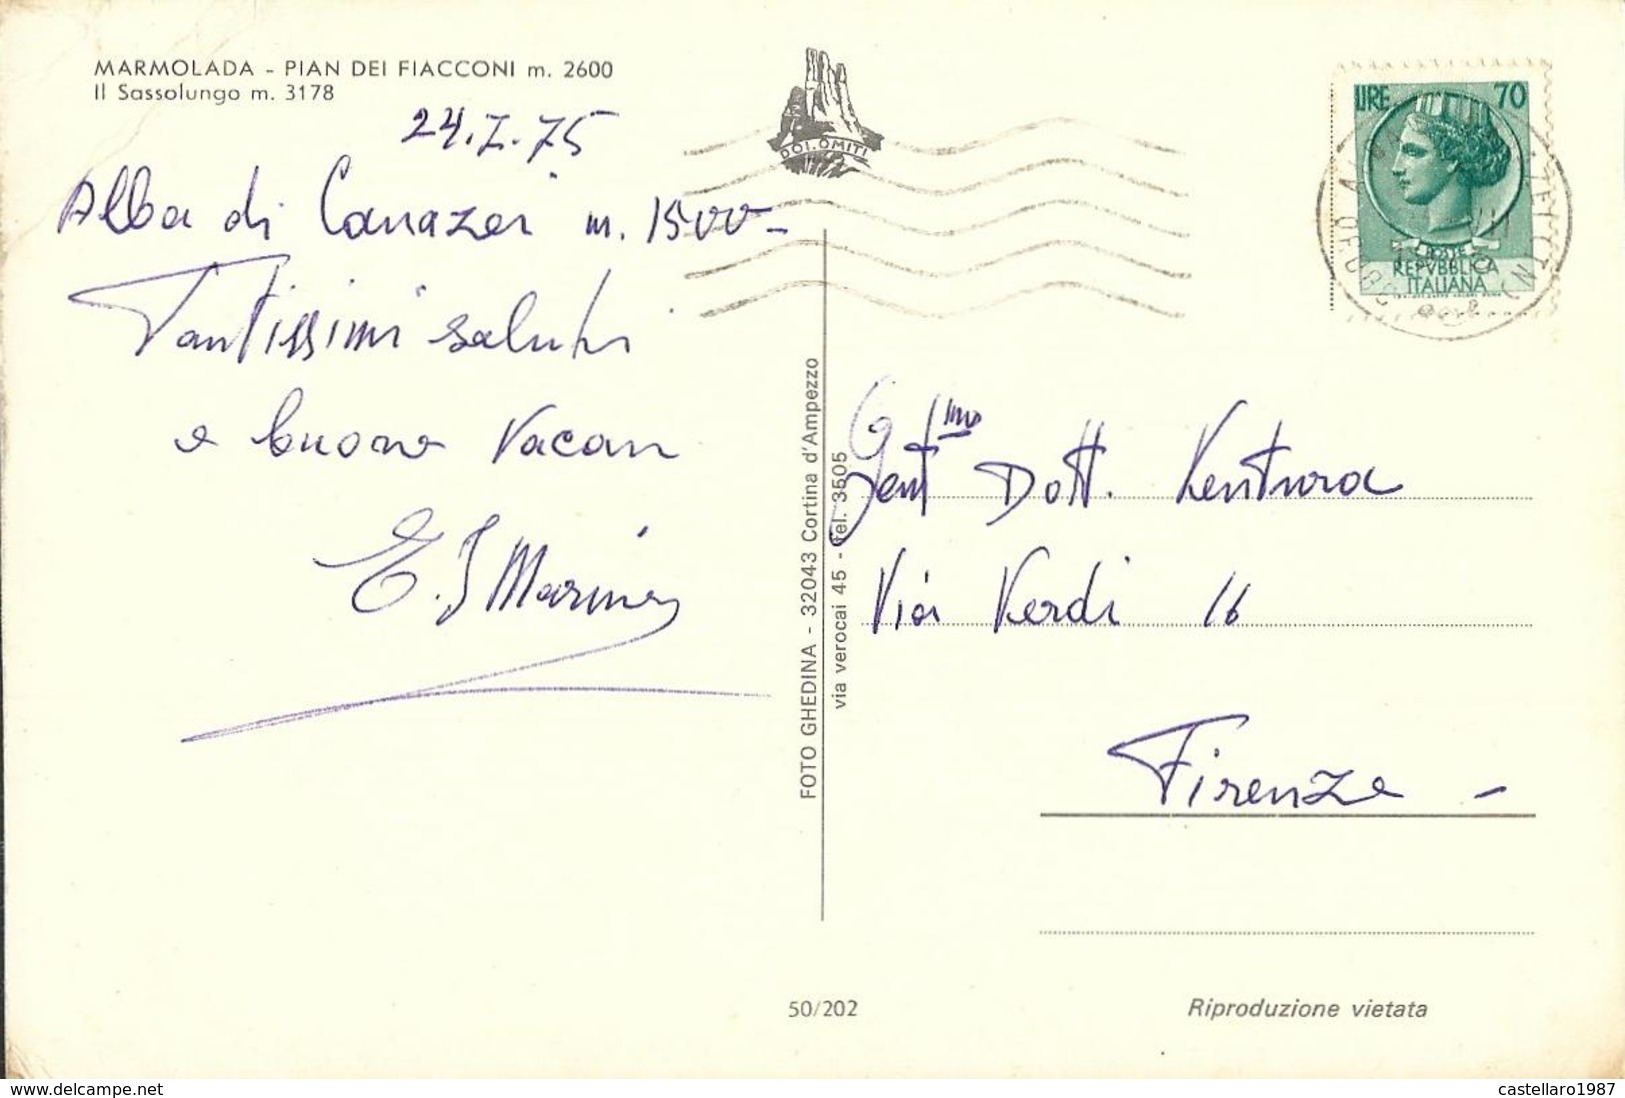 MARMOLADA - PIAN DEI FIACCONI m. 2600
Il Sassolungo m. 3178
24.7.75
Alba di Canazei m. 1500-
Tantissimi saluti
e buone Vacan
DOLOMITI
LIRE 70
POSTE
REPVBBLICA
ITALIANA
FOTO GHEDINA - 32043 Cortina d'Ampezzo
via verocai 45 - Tel. 3505
Gent.mo Dott. Ventura
Via Verdi 16
Firenze -
50/202
Riproduzione vietata
www.delcampe.net
castellaro1987